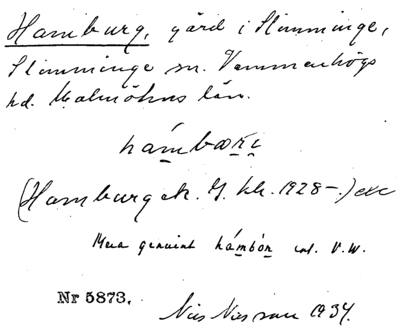 Hamburg, gård i Slimminge,
Slimminge sn. Vemmenhögs
hd. Malmöhus län.
hámbọrι
(Hamburg ek. G. kh. 1928–.) exc
Mera genuint hámbón enl. V.W.
Nr 5873.
Nils Nilsson 1934.